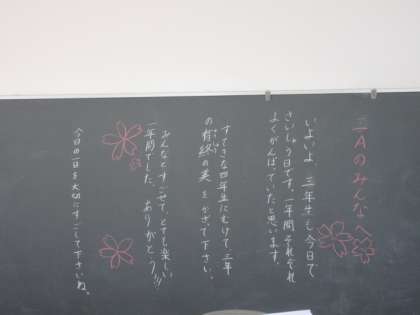 三Aのみんなへ
いよいよ、三年生も今日で
さいしゅう日です。一年間それぞれ
よくがんばっていたと思います。
すてきな四年生にむけて三年
の有終の美をかざて下さい。
みんなとすごせて、とても楽しい
一年間でした。ありがとう!!!
今日の一日を大切にすごして下さいね。